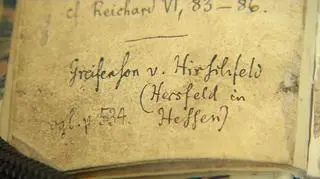 cf. Reichard VI, 83-86.
Greifenson v. Hirschfeld
(Hersfeld in
vgl. p 534. Hessen)